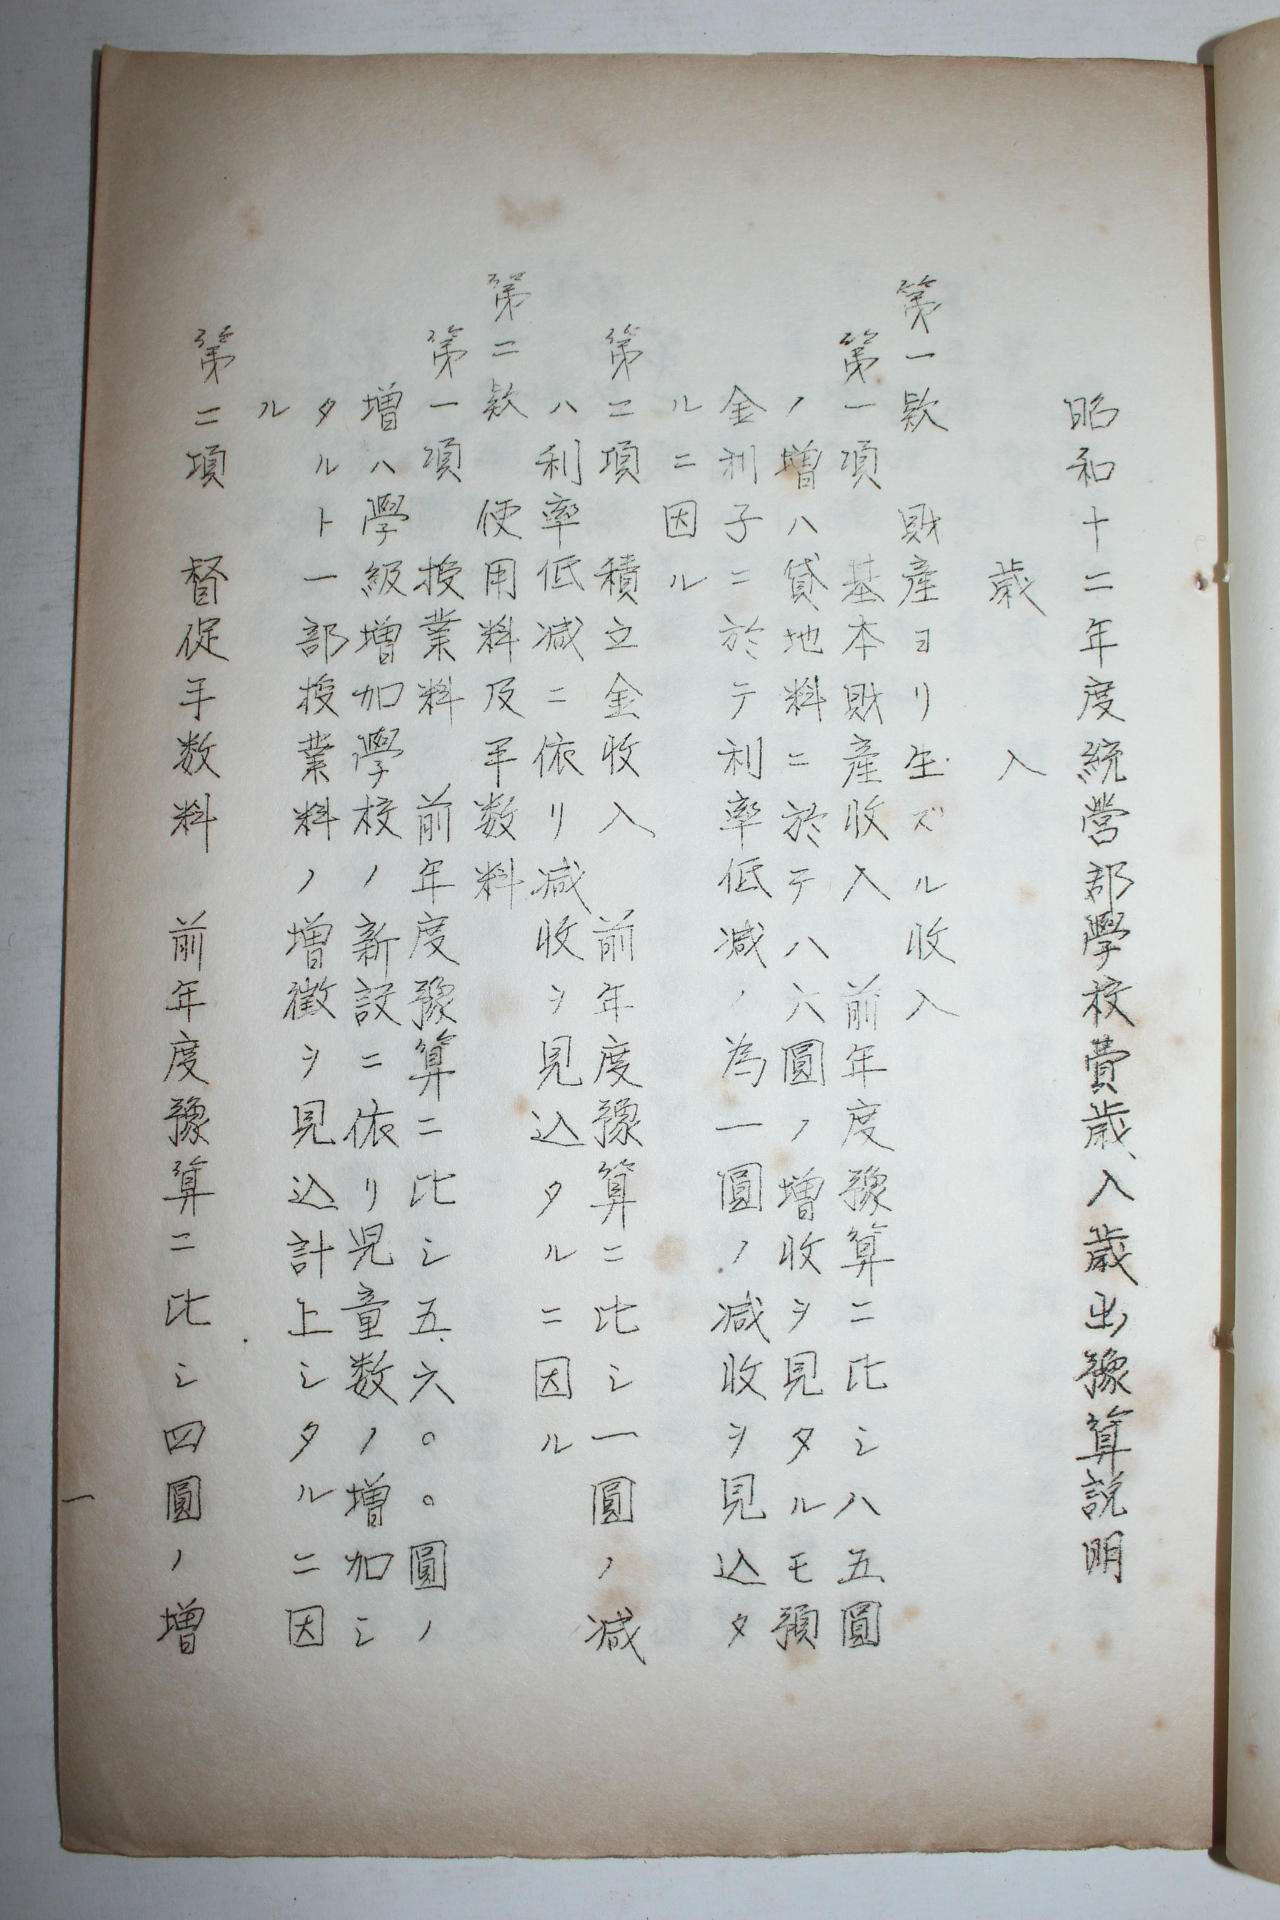 昭和十二年度統營郡學校費歲入歲出豫算説明
歲入
第一款 財產ヨリ生ズル收入
第一項 基本財產收入 前年度豫算ニ比シ八五圓
ノ增ハ貸地料ニ於テ八六圓ノ增收ヲ見タルモ預
金利子ニ於テ利率低減ノ為一圓ノ減收ヲ見込タ
ルニ因ル
第二項 積立金收入 前年度豫算ニ比シ一圓ノ減
ハ利率低減ニ依リ減收ヲ見込タルニ因ル
第二款 使用料及手数料
第一項 授業料 前年度豫算ニ比シ五六〇〇圓ノ
增ハ學級增加學校ノ新設ニ依リ児童数ノ增加シ
タルト一部授業料ノ增徵ヲ見込計上シタルニ因
ル
第二項 督促手数料 前年度豫算ニ比シ四圓ノ增
一